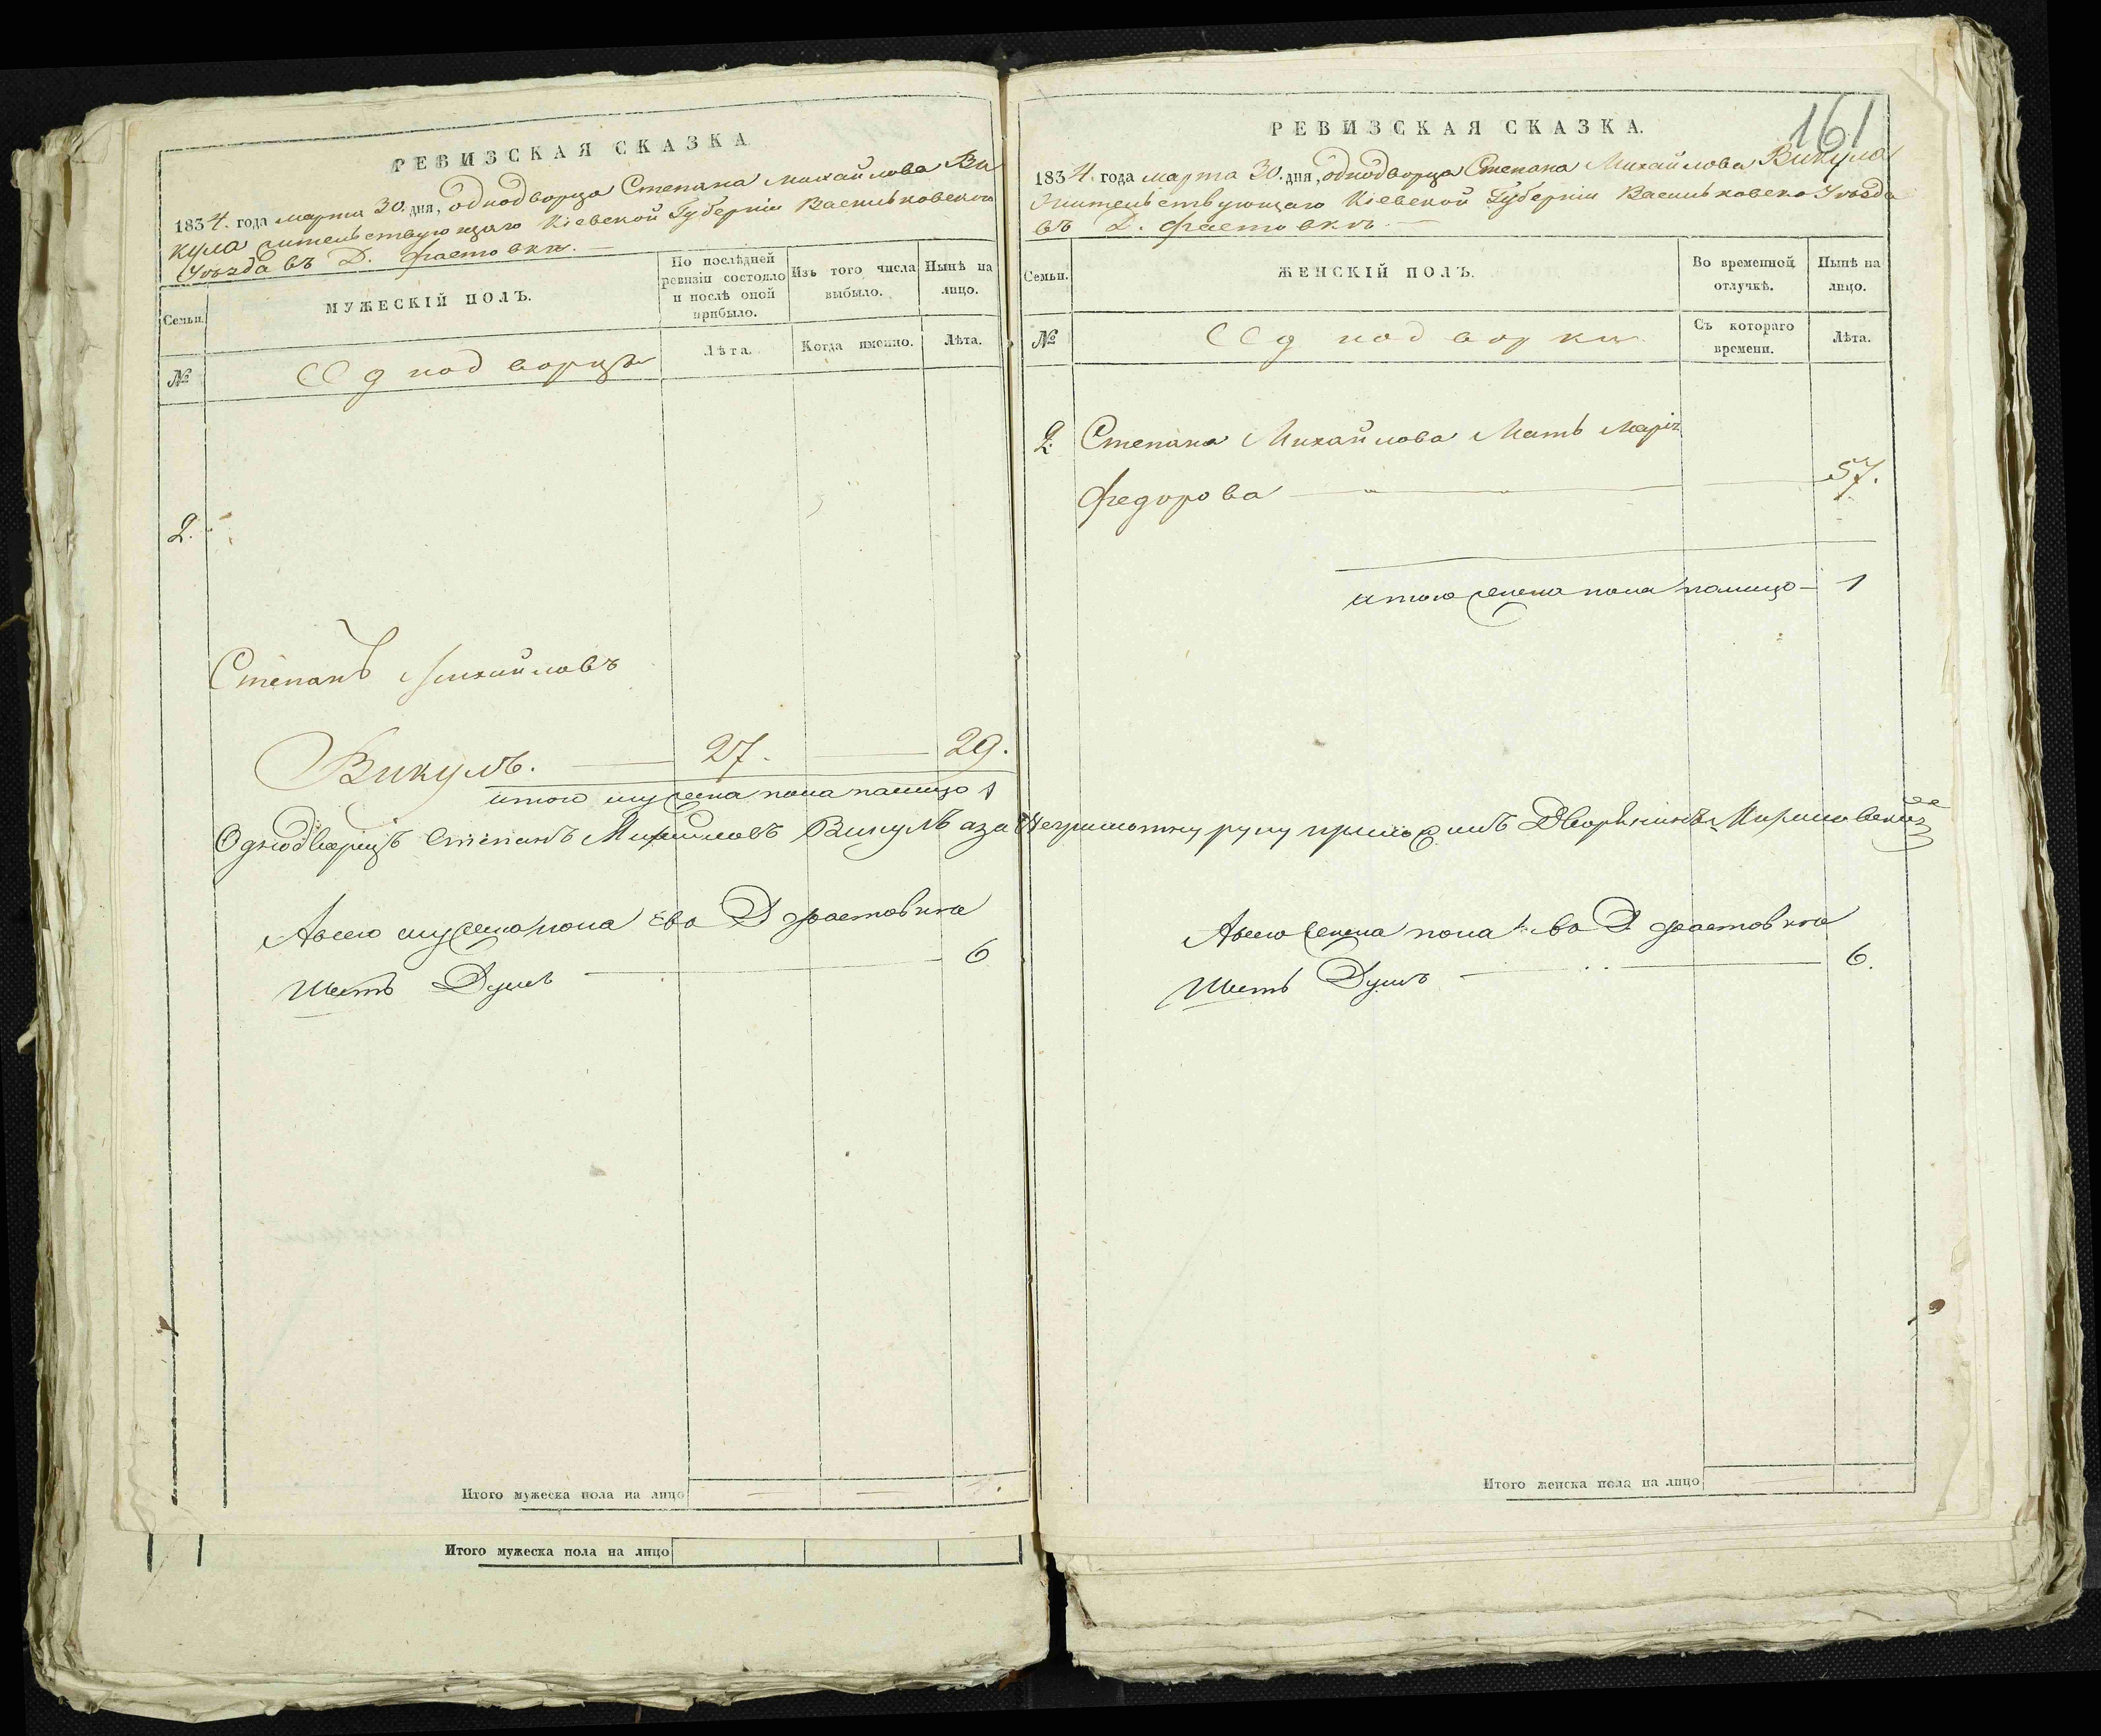 РЕВИЗСКАЯ СКАЗКА
1834. года марта 30. дня, однодворца Степана Михайлова Ви
кула жительствующаго Кіевской Губерніи Васильковского
Уѣзда въ Д. Фастовкѣ. —
Семьи.
МУЖЕСКІЙ ПОЛЪ.
По послѣдней ревизіи состояло и послѣ оной прибыло.
Изъ того числа выбыло.
Нынѣ на лицо.
№
Однодворцы
Лѣта.
Когда именно.
Лѣта.
2.
Степанъ Михайловъ
Викулъ. — 27. — 29.
итого мужеска пола налицо 1
Однодворецъ Степанъ Михайловъ Викулъ а за
Авсего мужеска пола въ Д Фастовке
шесть Душъ — 6
Итого мужеска пола на лицо 1.
Итого мужеска пола на лицо
161
РЕВИЗСКАЯ СКАЗКА.
1834. года марта 30. дня, однодворца Степана Михайлова Викула
жительствующаго Кіевской Губерніи Васильковско Уѣзда
въ Д. Фастовкѣ. —
Семьи.
ЖЕНСКІЙ ПОЛЪ.
Во временной отлучкѣ.
Нынѣ на лицо.
№
Однодворки
Съ котораго времени.
Лѣта.
2. Степана Михайлова Мать Марія
Федорова — 57.
итого женска пола налицо — 1
Неграмотну руку приложилъ Дворянинъ
Авсего женска пола въ Д Фастовке
шесть Душъ — 6.
Итого женска пола на лицо